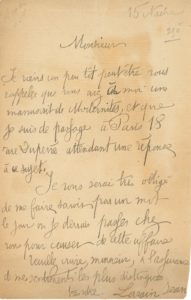 15 Mars
Monsieur
Je viens un peu tôt peut-être vous
rappeler que vous avez de moi un
manuscrit de Modernités, et que
je suis de passage à Paris 18
rue Duperré attendant une réponse
à ce sujet.
Je vous serai très obligé
de me faire savoir par un mot
le jour où je devrais passer chez
vous pour causer de cette affaire
veuillez croire, monsieur, à l'assurance
de mes sentiments les plus distingués
Lorrain Jean